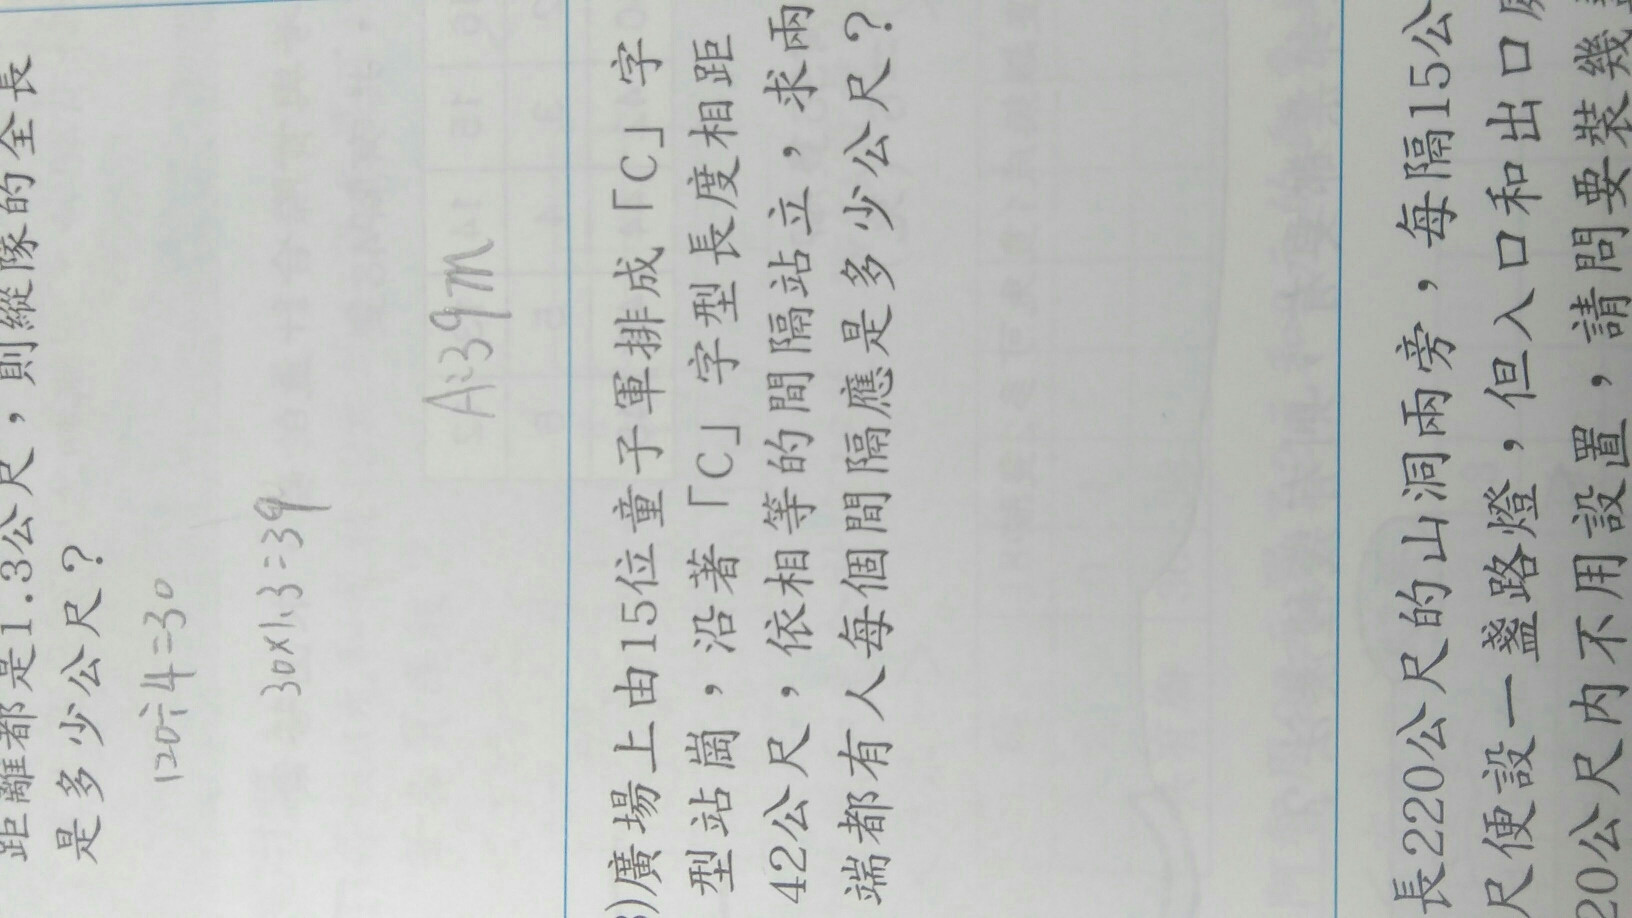 距離都是1.3公尺，則縱隊的全長
是多少公尺？
120÷4=30
30×1.3=39
A:39m
廣場上由15位童子軍排成「C」字
型站崗，沿著「C」字型長度相距
42公尺，依相等的間隔站立，求兩
端都有人每個間隔應是多少公尺？
長220公尺的山洞兩旁，每隔15公
尺便設一盞路燈，但入口和出口
20公尺內不用設置，請問要裝幾